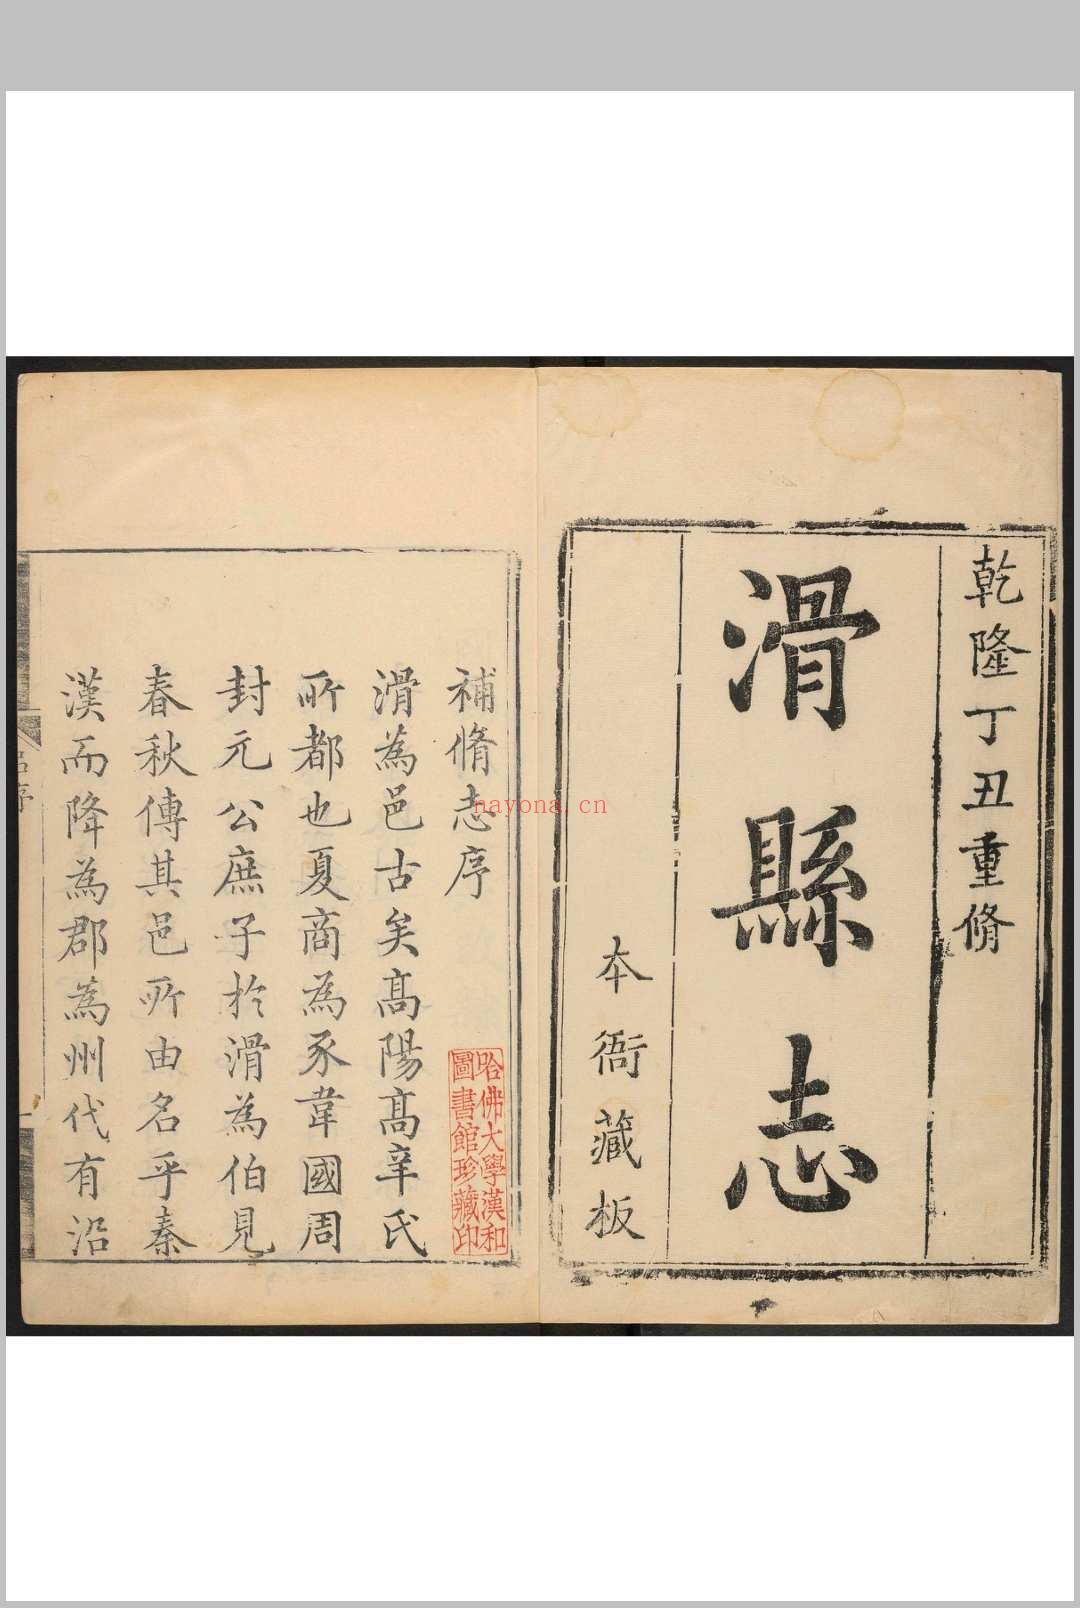 乾隆丁丑重脩
滑縣志
本衙藏板
補脩志序
滑為邑古矣髙陽髙辛氏
所都也夏商為豕韋國周
封元公庶子於滑為伯見
春秋傳其邑所由名乎秦
漢而降為郡為州代有沿
哈佛大學漢和
圖書館珍藏印
nayona.cn